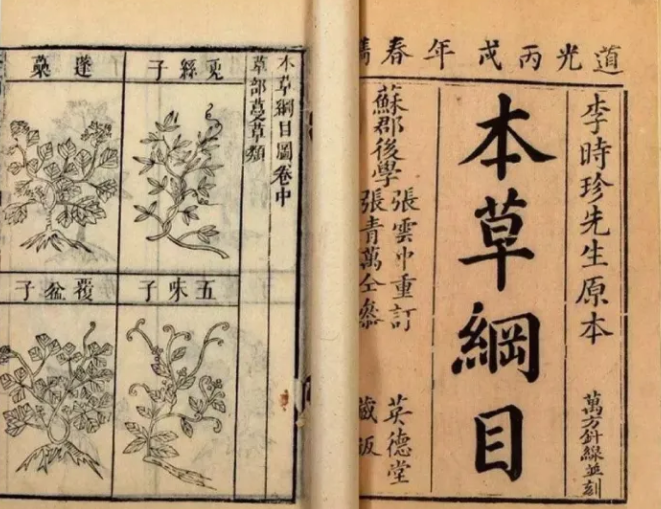 道光丙戌年春鐫
李時珍先生原本
萬方針線並刻
本草綱目
蘇郡後學
張雲中重訂
張青萬仝參
英德堂
藏版
本草綱目圖卷中
草部蔓草類
兎絲子
五味子
蓬蘽
覆盆子